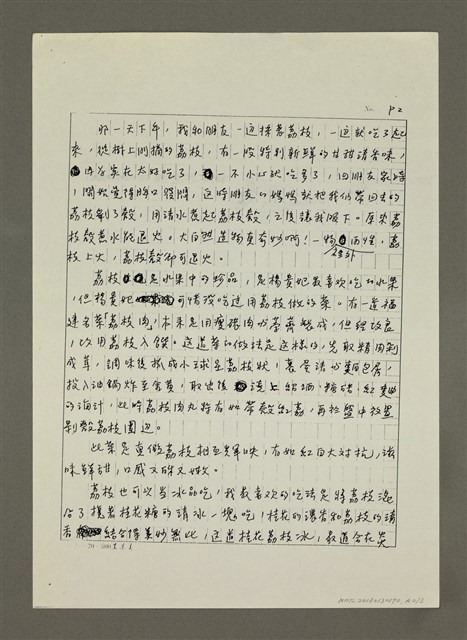 No. P2
那一天下午，我和朋友一邊採著荔枝，一邊就吃了起
來，從樹上剛摘的荔枝，有一股特別新鮮的甘甜清香味，
因為實在太好吃了，一不小心就吃多了，回朋友家時
，開始覺得胸口發悶，這時朋友的媽媽就把我們帶回去的
荔枝剝了殼，用清水煮起荔枝殼，之後讓我喝下。原來荔
枝殼煮水能退火。大自然造物真奇妙啊！一物兩性，荔
枝上火，荔枝殼卻可退火。
荔枝是水果中的珍品，是楊貴妃最喜歡吃的水果
，但楊貴妃可惜沒吃過用荔枝做的菜。有一道福
建名菜「荔枝肉」，本來是用瘦豬肉或荸薺做成，但經改良
，改用荔枝入饌。這道菜的做法是這樣的，先取精肉剁
成茸，調味後抓成小球呈荔枝狀，
投入油鍋炸至金黃，取出後澆上
的油汁，此時荔枝肉丸將有如帶殼紅荔，再於盤中放置
剝殼荔枝圍邊。
此菜是真假荔枝相互輝映，有如紅白大對抗，滋
味鮮甜，口感又酥又嫩。
荔枝也可以當冰品吃，我最喜歡的吃法是將荔枝混
合了攙著桂花糖的清冰一塊吃，桂花的濃香和荔枝的清
香結合得美妙無比，這道桂花荔枝冰，最適合在炎